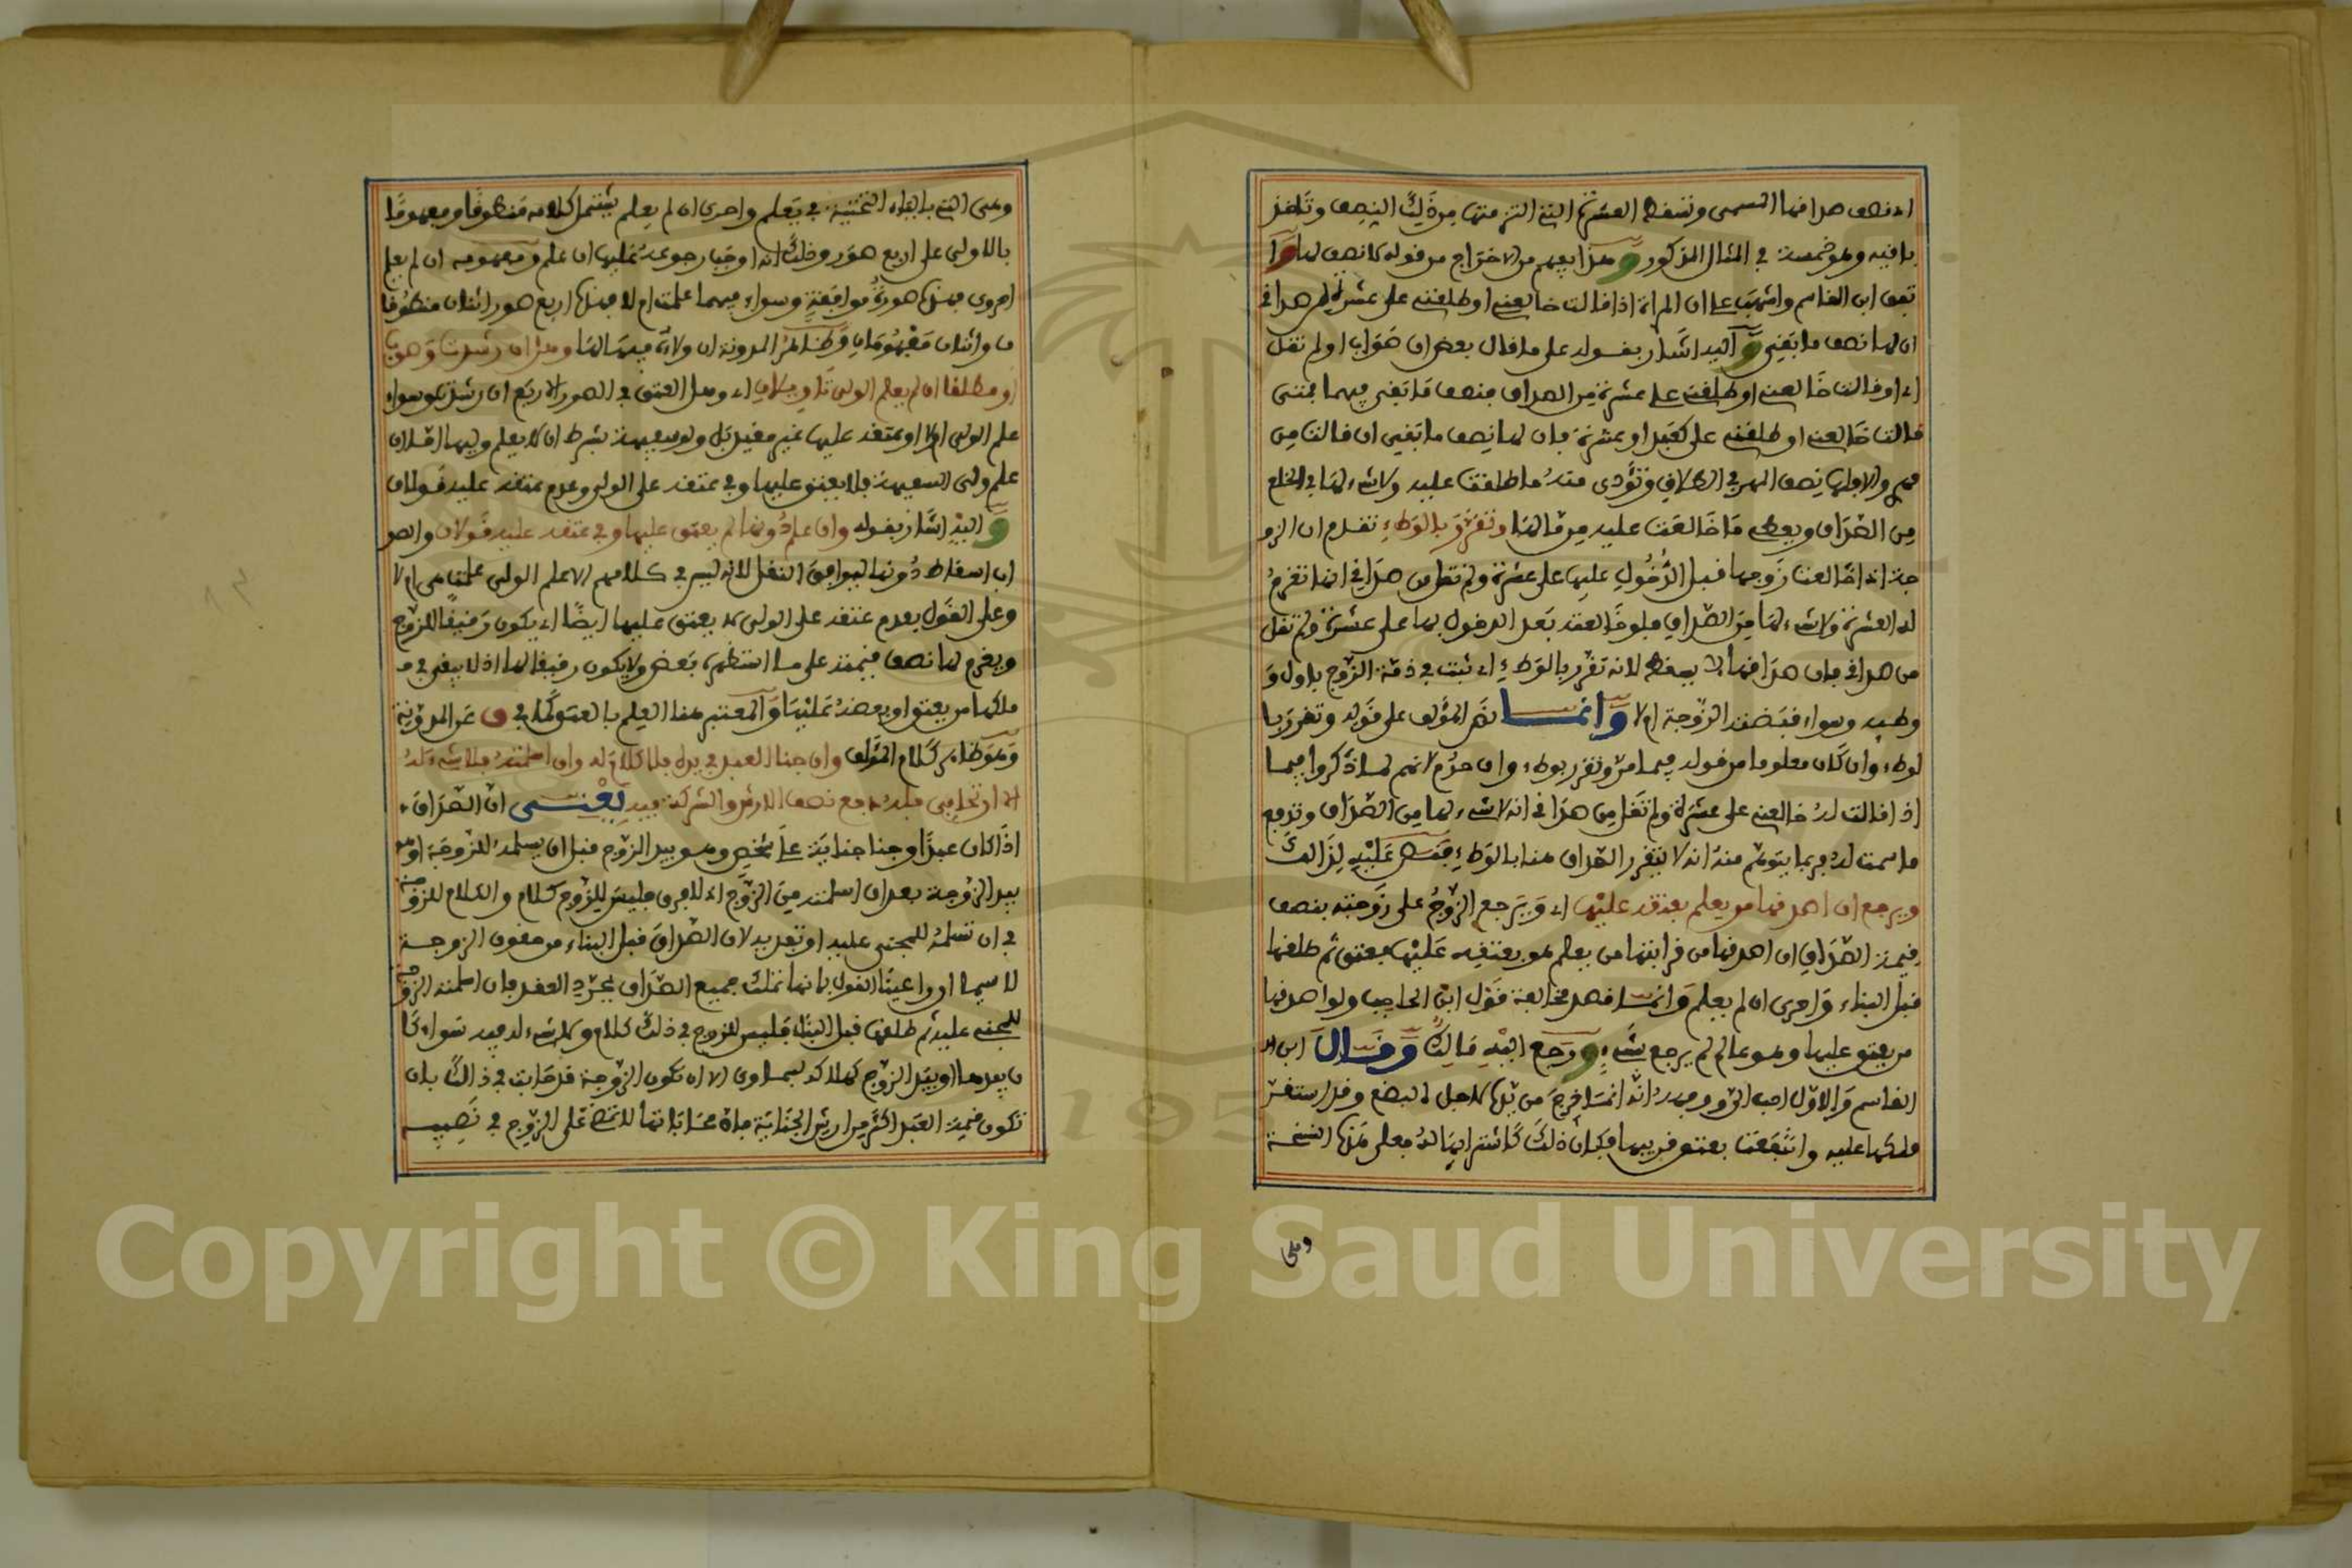 اي نصف صداقها المسمى وتسقط العشرة التي التزمتها من ذلك النصف وتاخذ
باقيه وهو خمسة في المثال المذكور وهذا يفهم من الاخراج من قوله كانصف لها وا
تفق ابن القاسم واشهب على ان المراة اذا قالت خالعني او طلقني على عشرة من صداقي
ان لها نصف ما بقي واليه اشار بقوله على ما قال بعض ان صواب او لم تقل
اي او قالت خالعني او طلقني على عشرة من الصداق فنصف ما بقي فيهما فمتى
قالت خالعني او طلقني على كعبد او عشرة فان لها نصف ما بقي ان قالت من
مهر والا فلها نصف المهر في الطلاق وتؤدى منه ما طلقت عليه ولا شيء لها في الخلع
من الصداق ويعطى ما خالعت عليه من مالها وتقرر بالوطء تقدم ان الزو
جة اذا خالعت زوجها قبل الدخول عليها على عشرة ولم تقل من صداقي انها تغرم
له العشرة ولا شيء لها من الصداق فلو خالعته بعد الدخول بها على عشرة ولم تقل
من صداقي فان صداقها لا يسقط لانه تقرر بالوطء اي ثبت في ذمة الزوج باول و
وطئه وسواء قبضته الزوجة ام لا وانما نص المؤلف على قوله وتقرر با
لوطء وان كان معلوما من قوله فيما مر وتقرر بوطء وان حرم لانهم لما ذكروا فيما
اذا قالت له خالعني على عشرة ولم تقل من صداقي انه لا شيء لها من الصداق وتدفع
ما سمت له فربما يتوهم منه انه لا يتقرر الصداق هنا بالوطء فنص عليه لذالك
ويرجع ان اصدقها من يعلم بعتقه عليها اي ويرجع الزوج على زوجته بنصف
قيمة الصداق ان اصدقها من قرابتها من يعلم هو بعتقه عليها فعتق ثم طلقها
قبل البناء واحرى ان لم يعلم وانما قصد مخالفة قول ابن الحاجب ولو اصدقها
من يعتق عليها وهو عالم لم يرجع بشيء ورجع اليه مالك وقال ابن ا
القاسم والاول احب الي ووجهه انه انما خرج من يده لاجل البضع وقد استقر
ملكها عليه وانتفعت بعتق قريبها فكان ذلك كاشترائها له فعلى هذه النسخة
وعلى
وعلى التي بالياء التحتية في يعلم واحرى ان لم يعلم يشتمل كلامه منطوقا ومفهوما
بالاولى على اربع صور وذلك انه اوجب رجوعه عليها ان علم ومفهومه ان لم يعلم
احرى فهذه صورة موافقة وسواء فيهما علمت ام لا فهذه اربع صور اثنان منطوقا
ن واثنان مفهومان وظاهر المدونة ان ولاءه فيهما لها وهل ان رشدت وصوب
او مطلقا ان لم يعلم الولي تاويلان اي وهل العتق في الصور الاربع ان رشدت وسواء
علم الولي ام لا او عتقه عليها غير مقيد بل ولو سفيهة بشرط ان لا يعلم وليها اما ان
علم ولي السفيهة فلا يعتق عليها وفي عتقه على الولي وعدم عتقه عليه قولان
واليه اشار بقوله وان علم دونها لم يعتق عليها وفي عتقه عليه قولان والصو
اب اسقاط دونها ليوافق النقل لانه ليس في كلامهم الا علم الولي علمت هي ام لا
وعلى القول بعدم عتقه على الولي لا يعتق عليها ايضا اي يكون رقيقا للزوج
ويغرم لها نصف قيمته على ما استظهره بعض ولا يكون رقيقا لها اذ لا يبقى في م
ملكها من يعتق او بعضه عليها والمعتبر هنا العلم بالعتق كما في ق عن المدونة
وهو ظاهر كلام المؤلف وان جنا العبد في يده فلا كلام له وان اسلمته فلا شيء له
الا ان تحابي فله دفع نصف الارش والشركة فيه يعني ان الصداق
اذا كان عبدا وجنا جناية على شخص وهو بيد الزوج قبل ان يسلمه للزوجة او هو
بيد الزوجة بعد ان اسلمته من الزوج اي لا فرق فليس للزوج كلام والكلام للزوجة
في ان تسلمه للمجني عليه او تفديه لان الصداق قبل البناء من حقوق الزوجة
لا سيما ان راعينا القول بانها تملك جميع الصداق بمجرد العقد فان اسلمته الزوجة
للمجني عليه ثم طلقها قبل البناء فليس للزوج في ذلك كلام ولا شيء له فيه سواء كا
ن بيدها او بيد الزوج كهلاكه سماوي الا ان تكون الزوجة قد حابت في ذالك بان
تكون قيمة العبد اكثر من ارش الجناية فان محاباتها لا تمضي على الزوج في نصيبه
Copyright © King Saud University
195